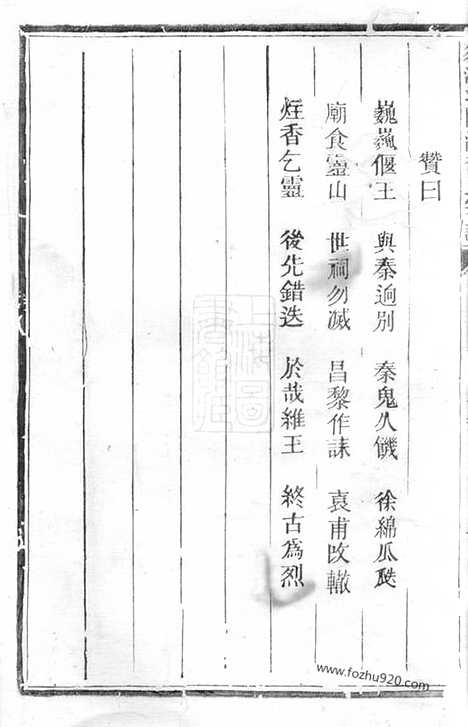 贊曰
巍巍偃王 與秦逈別 秦鬼久饑 徐綿瓜瓞
廟食靈山 世祠勿滅 昌黎作誄 袁甫改轍
炷香乞靈 後先錯迭 於哉維王 終古爲烈
www.fozhu920.com